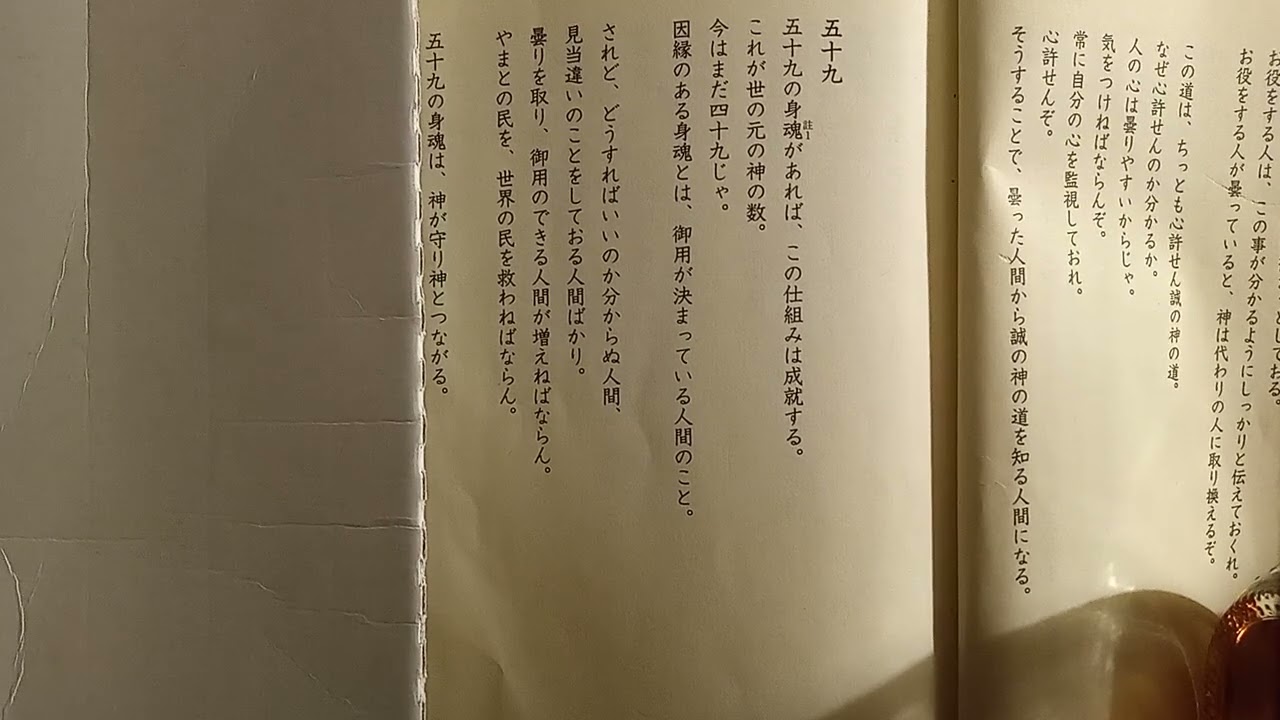 お役をする人は、この事が分かるようにしっかりと伝えておくれ。
お役をする人が曇っていると、神は代わりの人に取り換えるぞ。
この道は、ちっとも心許せん誠の神の道。
なぜ心許せんのか分かるか。
人の心は曇りやすいからじゃ。
気をつけねばならんぞ。
常に自分の心を監視しておれ。
心許せんぞ。
そうすることで、曇った人間から誠の神の道を知る人間になる。
五十九
五十九の身魂註1があれば、この仕組みは成就する。
これが世の元の神の数。
今はまだ四十九じゃ。
因縁のある身魂とは、御用が決まっている人間のこと。
されど、どうすればいいのか分からぬ人間、
見当違いのことをしておる人間ばかり。
曇りを取り、御用のできる人間が増えねばならん。
やまとの民を、世界の民を救わねばならん。
五十九の身魂は、神が守り神とつながる。